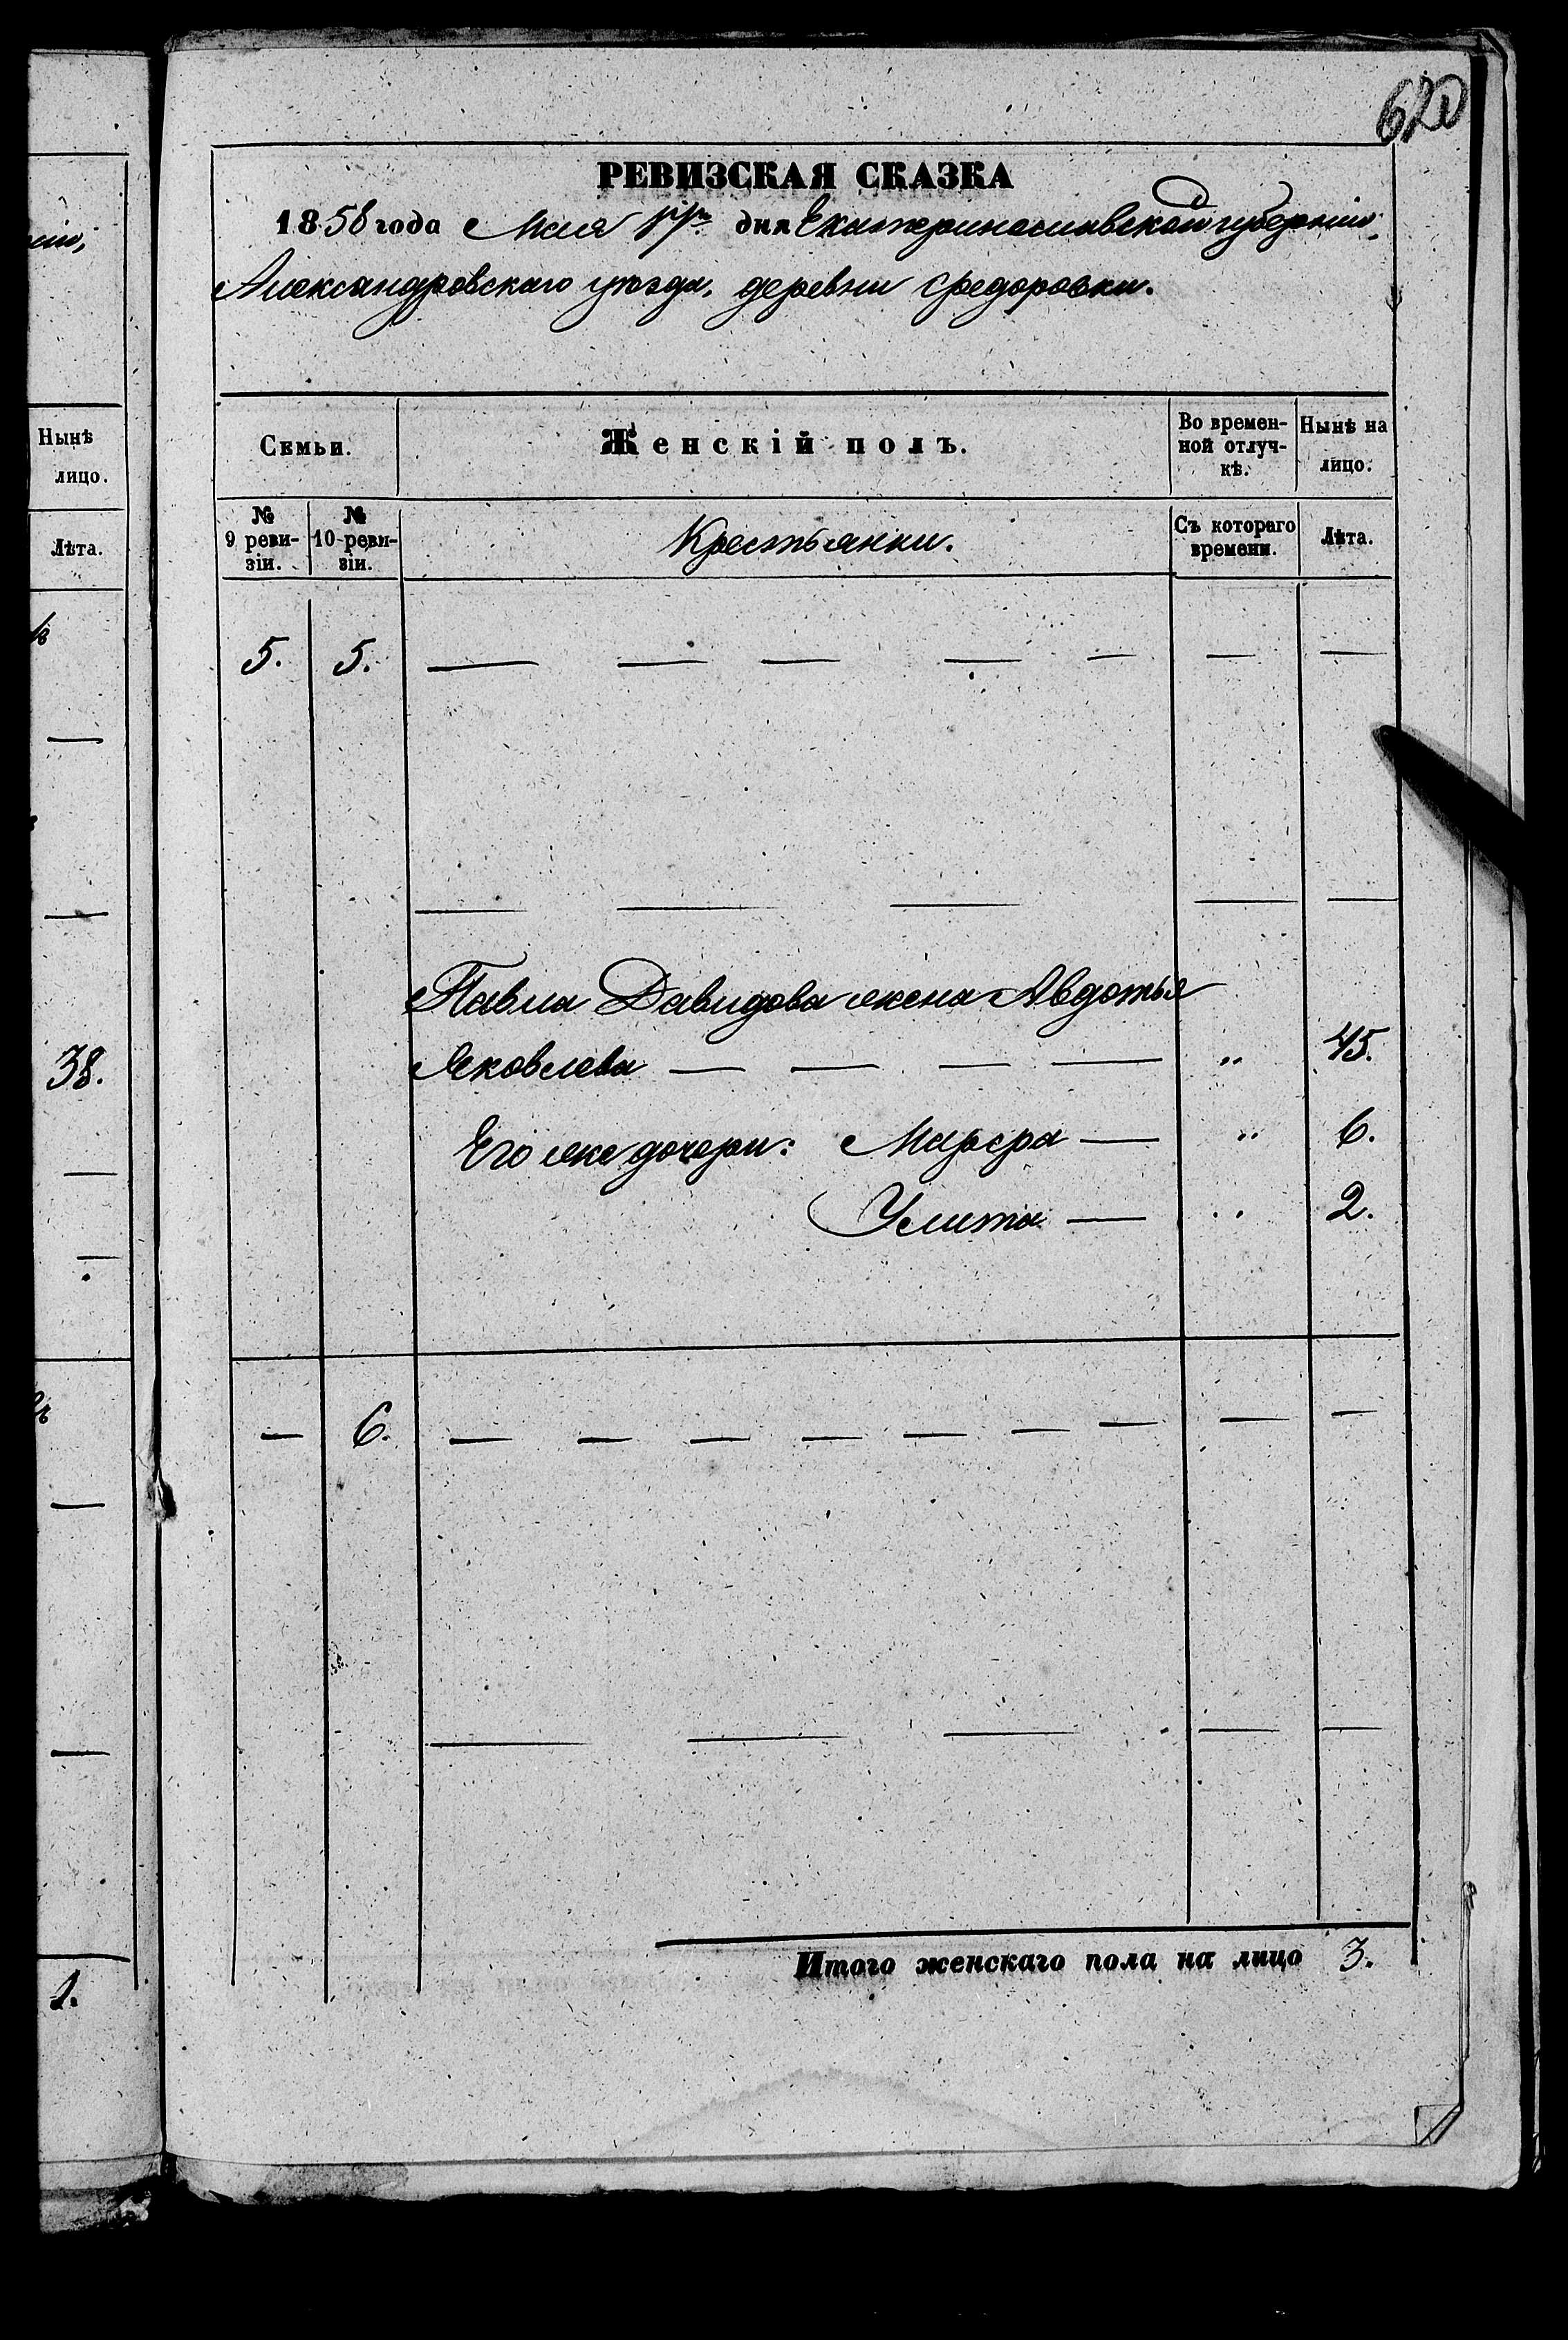 620
РЕВИЗСКАЯ СКАЗКА
1858 года Мая дня Екатеринославской губернии,
Александровскаго уѣзда, деревни Федоровки.
Семьи.
Женскій полъ.
Во времен-
ной отлуч-
кѣ.
Нынѣ на
лицо.
№
9 реви-
зіи.
№
10 реви-
зіи.
Крестьянки.
Съ котораго
времени.
Лѣта.
5. 5. — — — — — — —
— — — — —
Павла Давидова жена Авдотья
Яковлева — — — — „ 45.
Его же дочери: Марфа — „ 6.
Улита — „ 2.
— 6. — — — — — — — — —
— — — — —
Итого женскаго пола на лицо 3.
Нынѣ
лицо.
Лѣта.
38.
1.